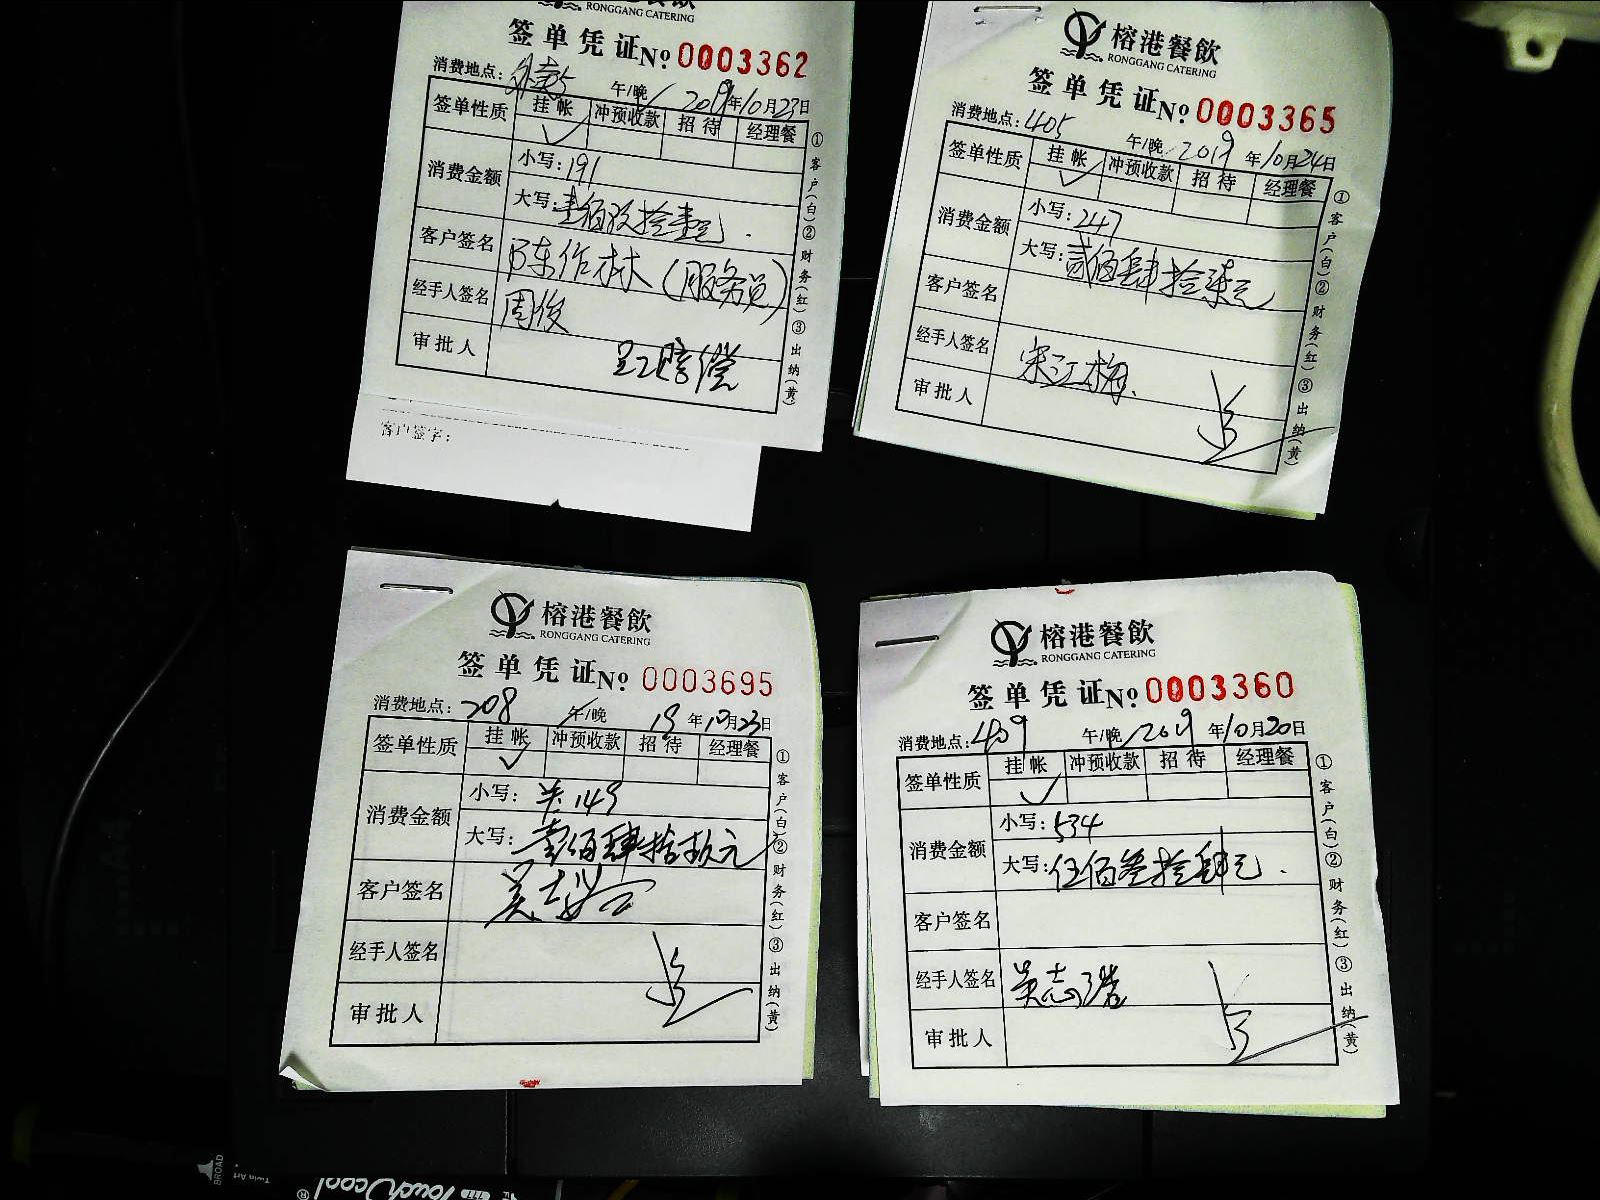 RONGGANG CATERING
签单凭证 No 0003362
消费地点: 午/晚 2019年10月23日
签单性质 挂帐 冲预收款 招待 经理餐
消费金额 小写: 191
大写: 壹佰玖拾壹元.
客户签名 陈作林(服务员)
经手人签名 周俊
审批人 员工赔偿
①客户(白)②财务(红)③出纳(黄)
客户签字:
榕港餐飲
RONGGANG CATERING
签单凭证 No 0003365
消费地点: 405 午/晚 2019年10月24日
签单性质 挂帐 冲预收款 招待 经理餐
消费金额 小写: 247
大写: 贰佰肆拾柒元
客户签名
经手人签名 宋江梅.
审批人
①客户(白)②财务(红)③出纳(黄)
榕港餐飲
RONGGANG CATERING
签单凭证 No 0003695
消费地点: 208 午/晚 19年10月23日
签单性质 挂帐 冲预收款 招待 经理餐
消费金额 小写: 149
大写: 壹佰肆拾玖元
客户签名
经手人签名
审批人
①客户(白)②财务(红)③出纳(黄)
榕港餐飲
RONGGANG CATERING
签单凭证 No 0003360
消费地点: 409 午/晚 2019年10月20日
签单性质 挂帐 冲预收款 招待 经理餐
消费金额 小写: 534
大写: 伍佰叁拾肆元.
客户签名
经手人签名
审批人
①客户(白)②财务(红)③出纳(黄)
BROAD
Twin Art
Touch cool®